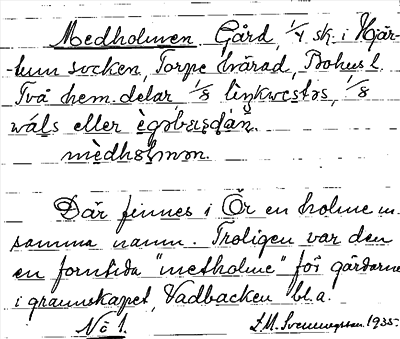 Medholmen Gård, 1/4 sk. i Hjär-
tum socken, Torpe härad, Bohusl.
Två hem.delar, 1/8 , 1/8
wáls eller
mèdhòlmən.
Där finnes i Ör en holme m.
samma namn. Troligen var den
en forntida "metholme" för gårdarne
i grannskapet, Vadbacken bl.a.
No 1. D.M. Svenningsson. 1935.